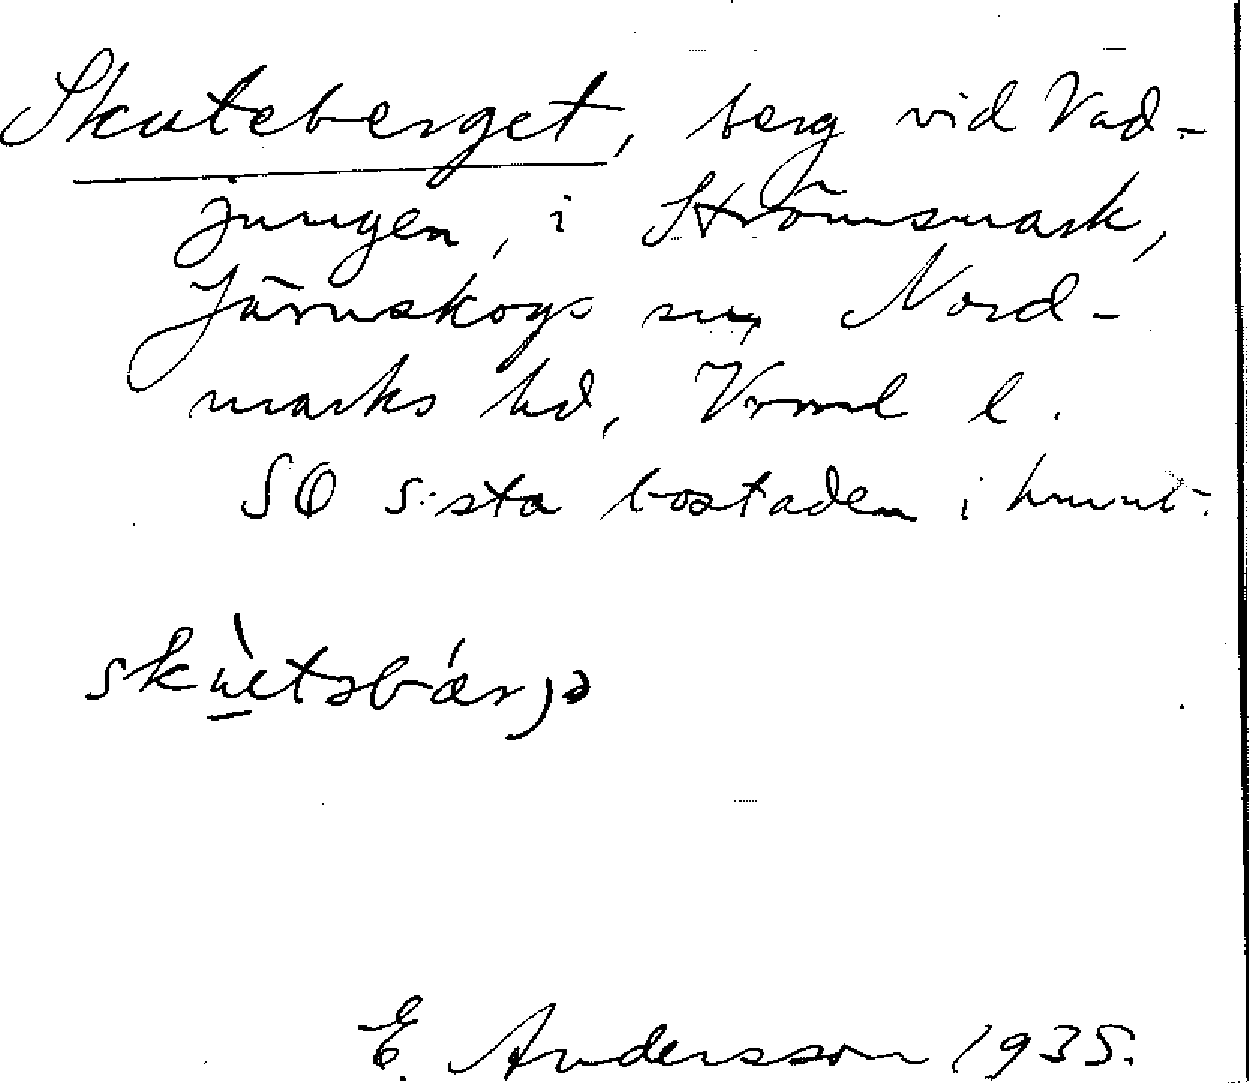 Skuteberget, berg vid Vad-
jungen, i Strömsmark,
Järnskogs sn, Nord-
marks hd, Vrml l.
SO sista bostaden i hmnt.
skùtəbǽrjə
E. Andersson 1935.